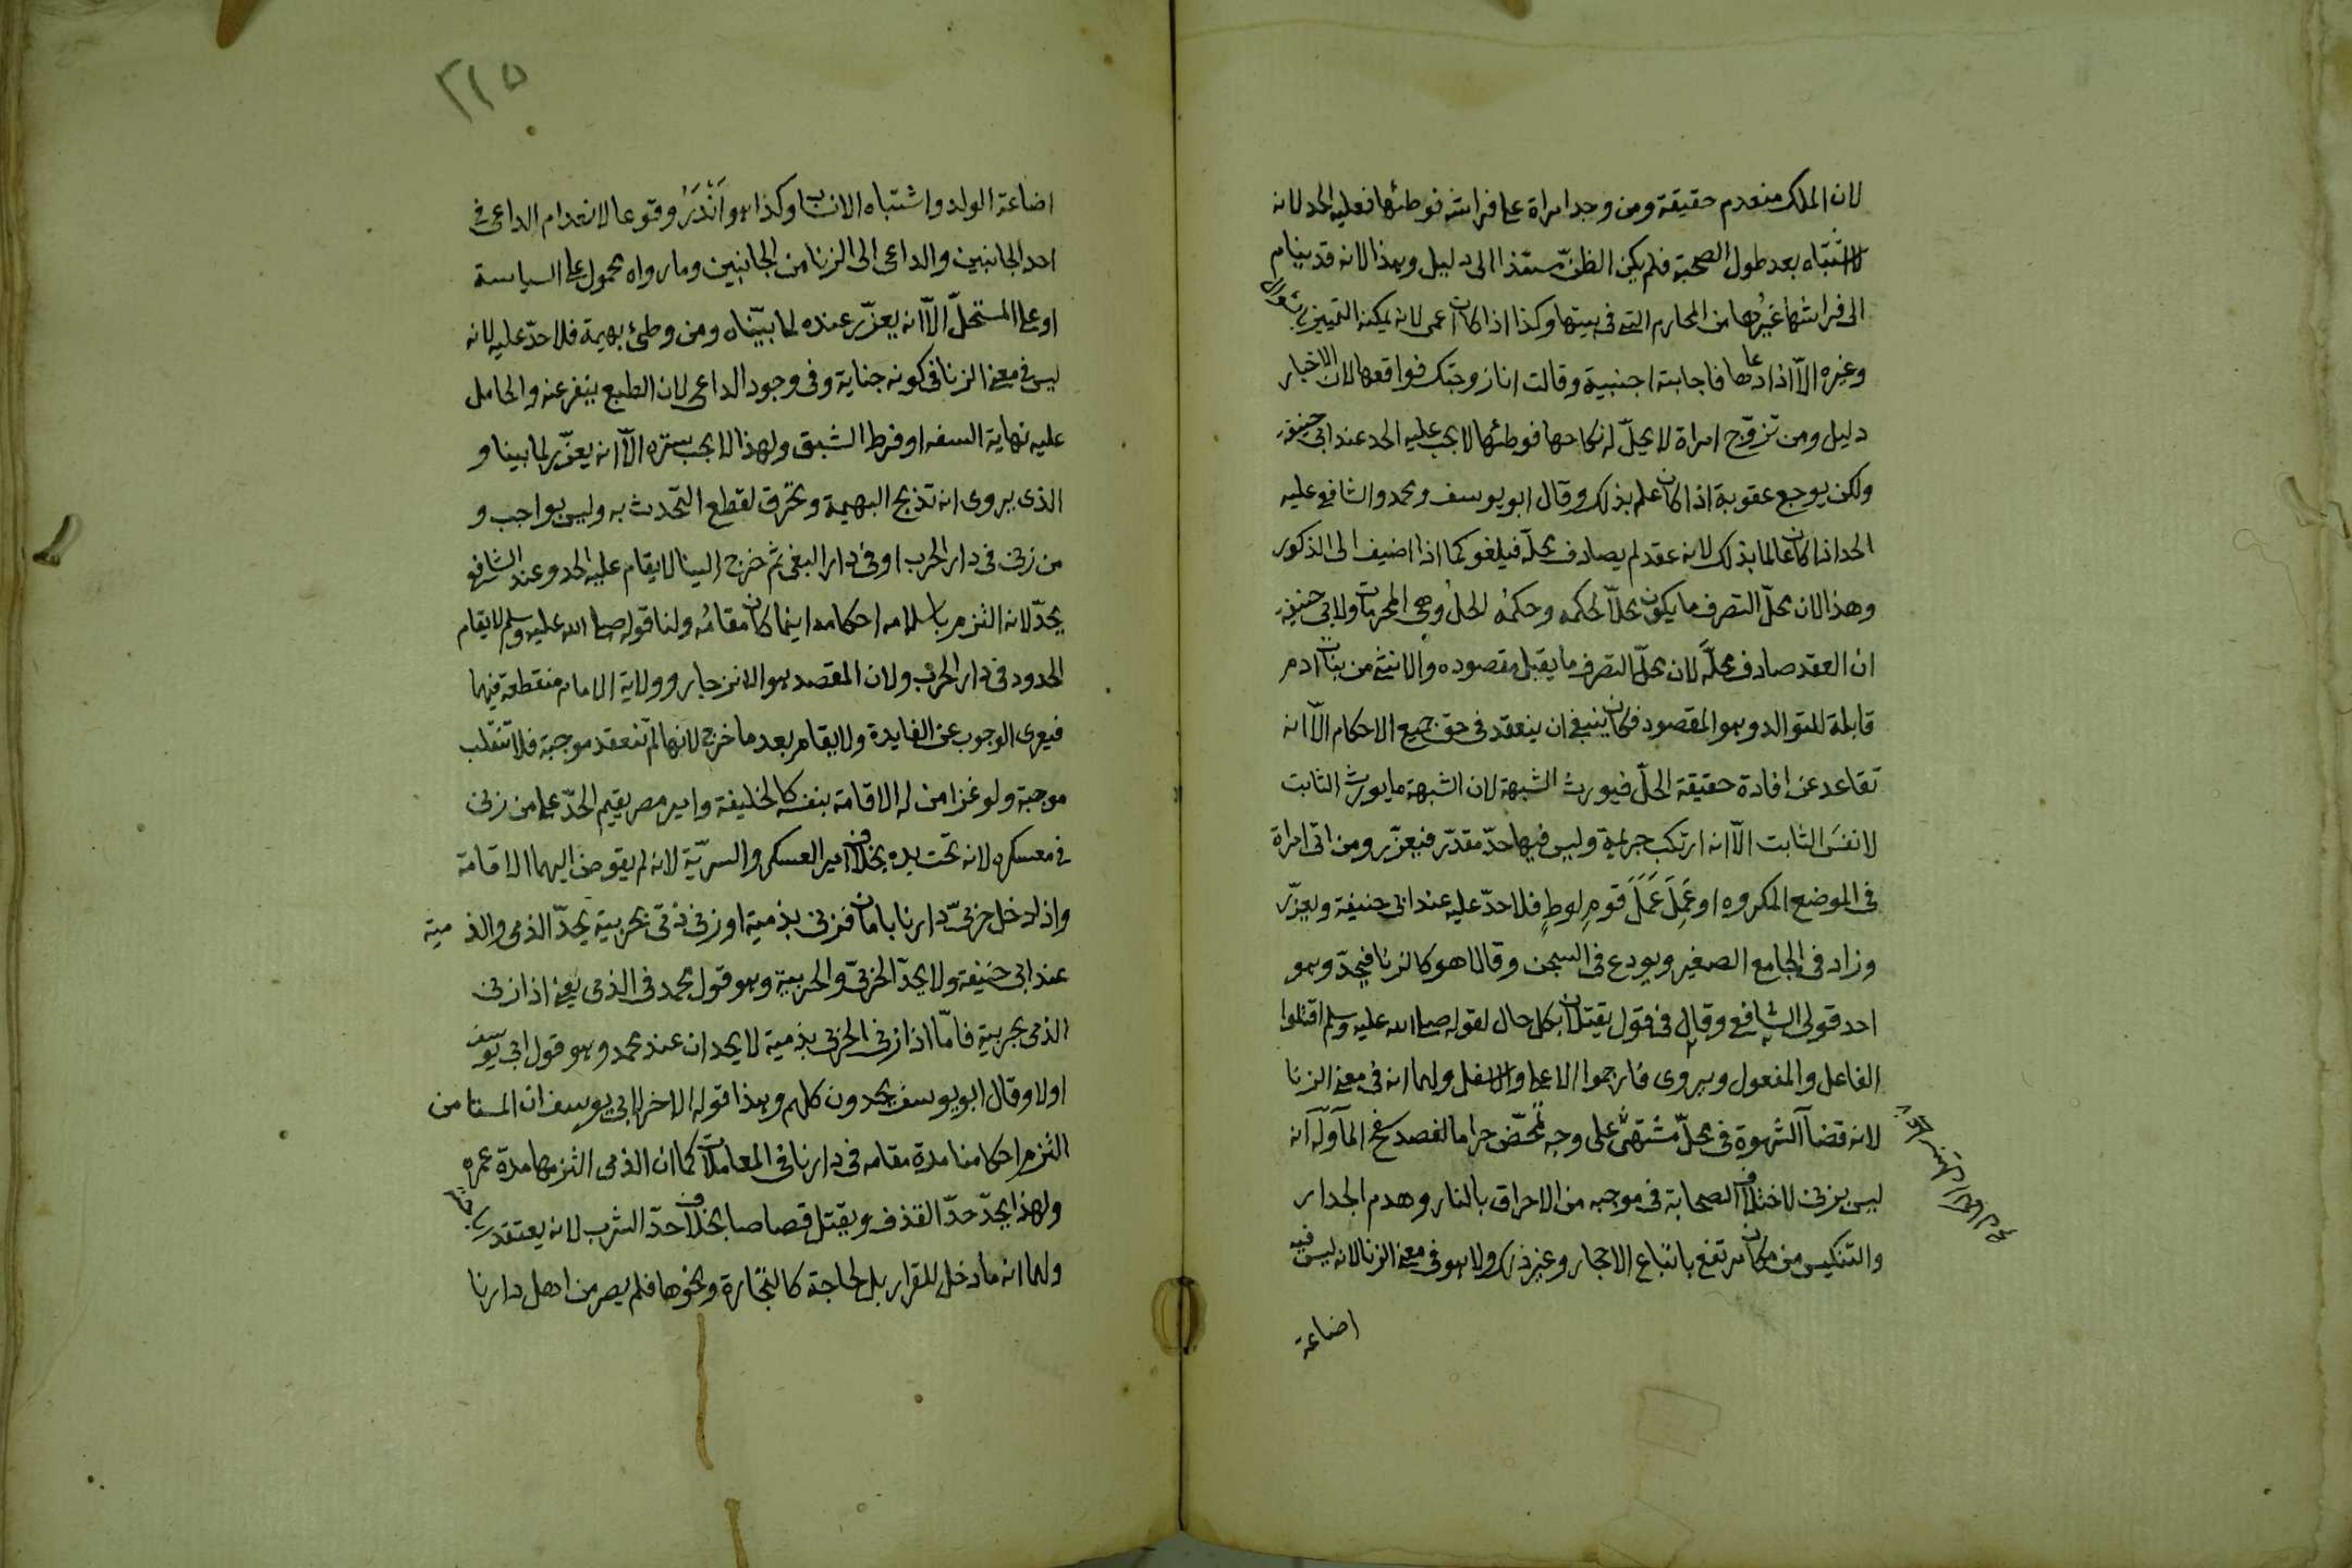 لان الملك منعدم حقيقة ومن وجد امراة على فراشه فوطئها فعليه الحد لانه
لا اشتباه بعد طول الصحبة فلم يكن الظن مستندا الى دليل وهذا لانه قد ينام
الى فراشها غيرُها من المحارم التى فى بيتها وكذا اذا كان اعمى لانه يمكنه التمييز بالسوال
وغيره الّا اذا دعاها فاجابته اجنبية وقالت انا زوجتك فواقعها لان الاخبار
دليل ومن تزوّج امراة لا يحلّ له نكاحها فوطئها لا يجب عليه الحد عند ابى حنيفة
ولكن يوجع عقوبة اذا كان علم بذلك وقال ابو يوسف ومحمد والشافعى عليه
الحد اذا كان عالما بذلك لانه عقد لم يصادف محلّه فيلغو كما اذا اضيف الى الذكور
وهذا لان محلّ التصرف ما يكون محلّا لحكمه وحكمُه الحلُ وهى المحرمات ولابى حنيفة
ان العقد صادف محلّه لان محلّ التصرف ما يقبل مقصوده والانثى من بنات ادم
قابلة للتوالد وهو المقصود فكان ينبغى ان ينعقد فى حق جميع الاحكام الّا انه
تقاعد عن افادة حقيقة الحلّ فيورث الشبهة لان الشبهة ما يورث الثابت
لا نفسَ الثابت الّا انه ارتكب جريمة وليس فيها حدّ مقدّر فيعزّر ومن اتى امراة
فى الموضع المكروه او عَمِلَ عَمَلَ قومِ لوطٍ فلا حدّ عليه عند ابى حنيفة ويعزّر
وزاد فى الجامع الصغير ويودع فى السجن وقالا هو كالزنا فيحدّ وهو
احد قولى الشافعى وقال فى قول يقتلان بكل حال لقوله صلى الله عليه وسلم اقتلوا
الفاعل والمفعول ويروى فارجموا الاعلى والاسفل ولهما انه فى معنى الزنا
لانه قضآ الشهوة فى محلّ مشتهىً على وجه تمحّض حراما لقصد سفح المآ وله انه
ليس بزنى لاختلاف الصحابة فى موجبه من الاحراق بالنار وهدم الجدار
والتنكيس من مكان مرتفع باتباع الاحجار وغير ذلك ولا هو فى معنى الزنا لانه ليس فيه
اضاعة
٢١٥
اضاعة الولد واشتباه الانساب وكذا هو اَنْدَرُ وقوعا لانعدام الداعى فى
احد الجانبين والداعى الى الزنا من الجانبين وما رواه محمول على السياسة
او على المستحلّ الّا انه يعزّر عنده لما بيّناه ومن وطئ بهيمة فلا حدّ عليه لانه
ليس فى معنى الزنا فى كونه جناية وفى وجود الداعى لان الطبع ينفر عنه والحامل
عليه نهاية السفه او فرط الشبق ولهذا لا يجب ستره الّا انه يعزّر لما بينا و
الذى يروى انه تذبح البهيمة وتحرق لقطع التحدث به وليس بواجب و
من زنى فى دار الحرب او فى دار البغى ثم خرج الينا لا يقام عليه الحد وعند الشافعى
يحدّ لانه التزم باسلامه احكامه اينما كان مقامُه ولنا قوله صلى الله عليه وسلم لا يقام
الحدود فى دار الحرب ولان المقصد هو الانزجار وولاية الامام منقطعة فيهما
فيعرى الوجوب عن الفايدة ولا يقام بعد ما خرج لانها لم تنعقد موجبة فلا تنقلب
موجبة ولو غزا من له الاقامة بنفسه كالخليفة وامير مصر يقيم الحدّ على من زنى
فى معسكره لانه تحت يده بخلاف امير العسكر والسريّة لانه لم يفوض اليهما الاقامة
واذا دخل حربىّ دارنا بامان فزنى بذمية او زنى ذمّى بحربية يحدّ الذمى والذمية
عند ابى حنيفة ولا يحدّ الحربىّ والحربية وهو قول محمد فى الذمى يعنى اذا زنى
الذمى بحربية فامّا اذا زنى الحربى بذمية لا يحدان عند محمد وهو قول ابى يوسف
اولا وقال ابو يوسف يحدون كلهم وهذا قوله الاخر لابى يوسف ان المستامن
التزم احكامنا مدة مقامه فى دارنا فى المعاملات كما ان الذمى التزمها مدة عمره
ولهذا يحدّ حدّ القذف ويقتل قصاصا بخلاف حدّ الشرب لانه يعتقد
ولهما انه ما دخل للقرار بل لحاجة كالتجارة ونحوها فلم يصر من اهل دارنا